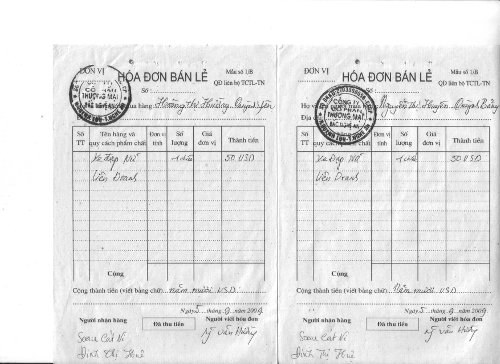 ĐƠN VỊ
HÓA ĐƠN BÁN LẺ
Mẫu số 1/B
QĐ liên bộ TCTL-TN
Số
THƯƠNG MẠI
BẮC NGHỆ AN
ua hàng
Số TT
Tên hàng và quy cách phẩm chất
Đơn vị tính
Số lượng
Giá đơn vị
Thành tiền
Xe Đạp Nữ
1 chiếc
50 USD
Liên Doanh
Cộng
Cộng thành tiền (viết bằng chữ) năm mươi USD
Ngày 5 tháng 9 năm
Người nhận hàng
Đã thu tiền
Người viết hóa đơn
Đinh Thị Huê
ĐƠN VỊ
HÓA ĐƠN BÁN LẺ
Mẫu số 1/B
QĐ liên bộ TCTL-TN
Số
CÔNG TY
CỔ PHẦN
THƯƠNG MẠI
BẮC NGHỆ AN
Họ v
Nguyễn Thị Huyền
Địa
Số TT
Tên hàng và quy cách phẩm chất
Đơn vị tính
Số lượng
Giá đơn vị
Thành tiền
Xe Đạp Nữ
1 chiếc
50 USD
Liên Doanh
Cộng
Cộng thành tiền (viết bằng chữ) Năm mươi USD
Ngày 5 tháng 9 năm
Người nhận hàng
Đã thu tiền
Người viết hóa đơn
Đinh Thị Huê